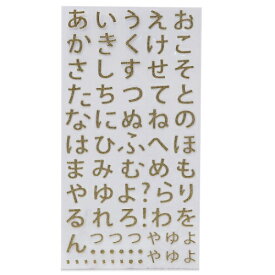 あいうえお
かきくけこ
さしすせそ
たちつてと
なにぬねの
はひふへほ
まみむめも
やゆよ?り
るれろ!をん
っっっゃゅょ
ゃゅょ